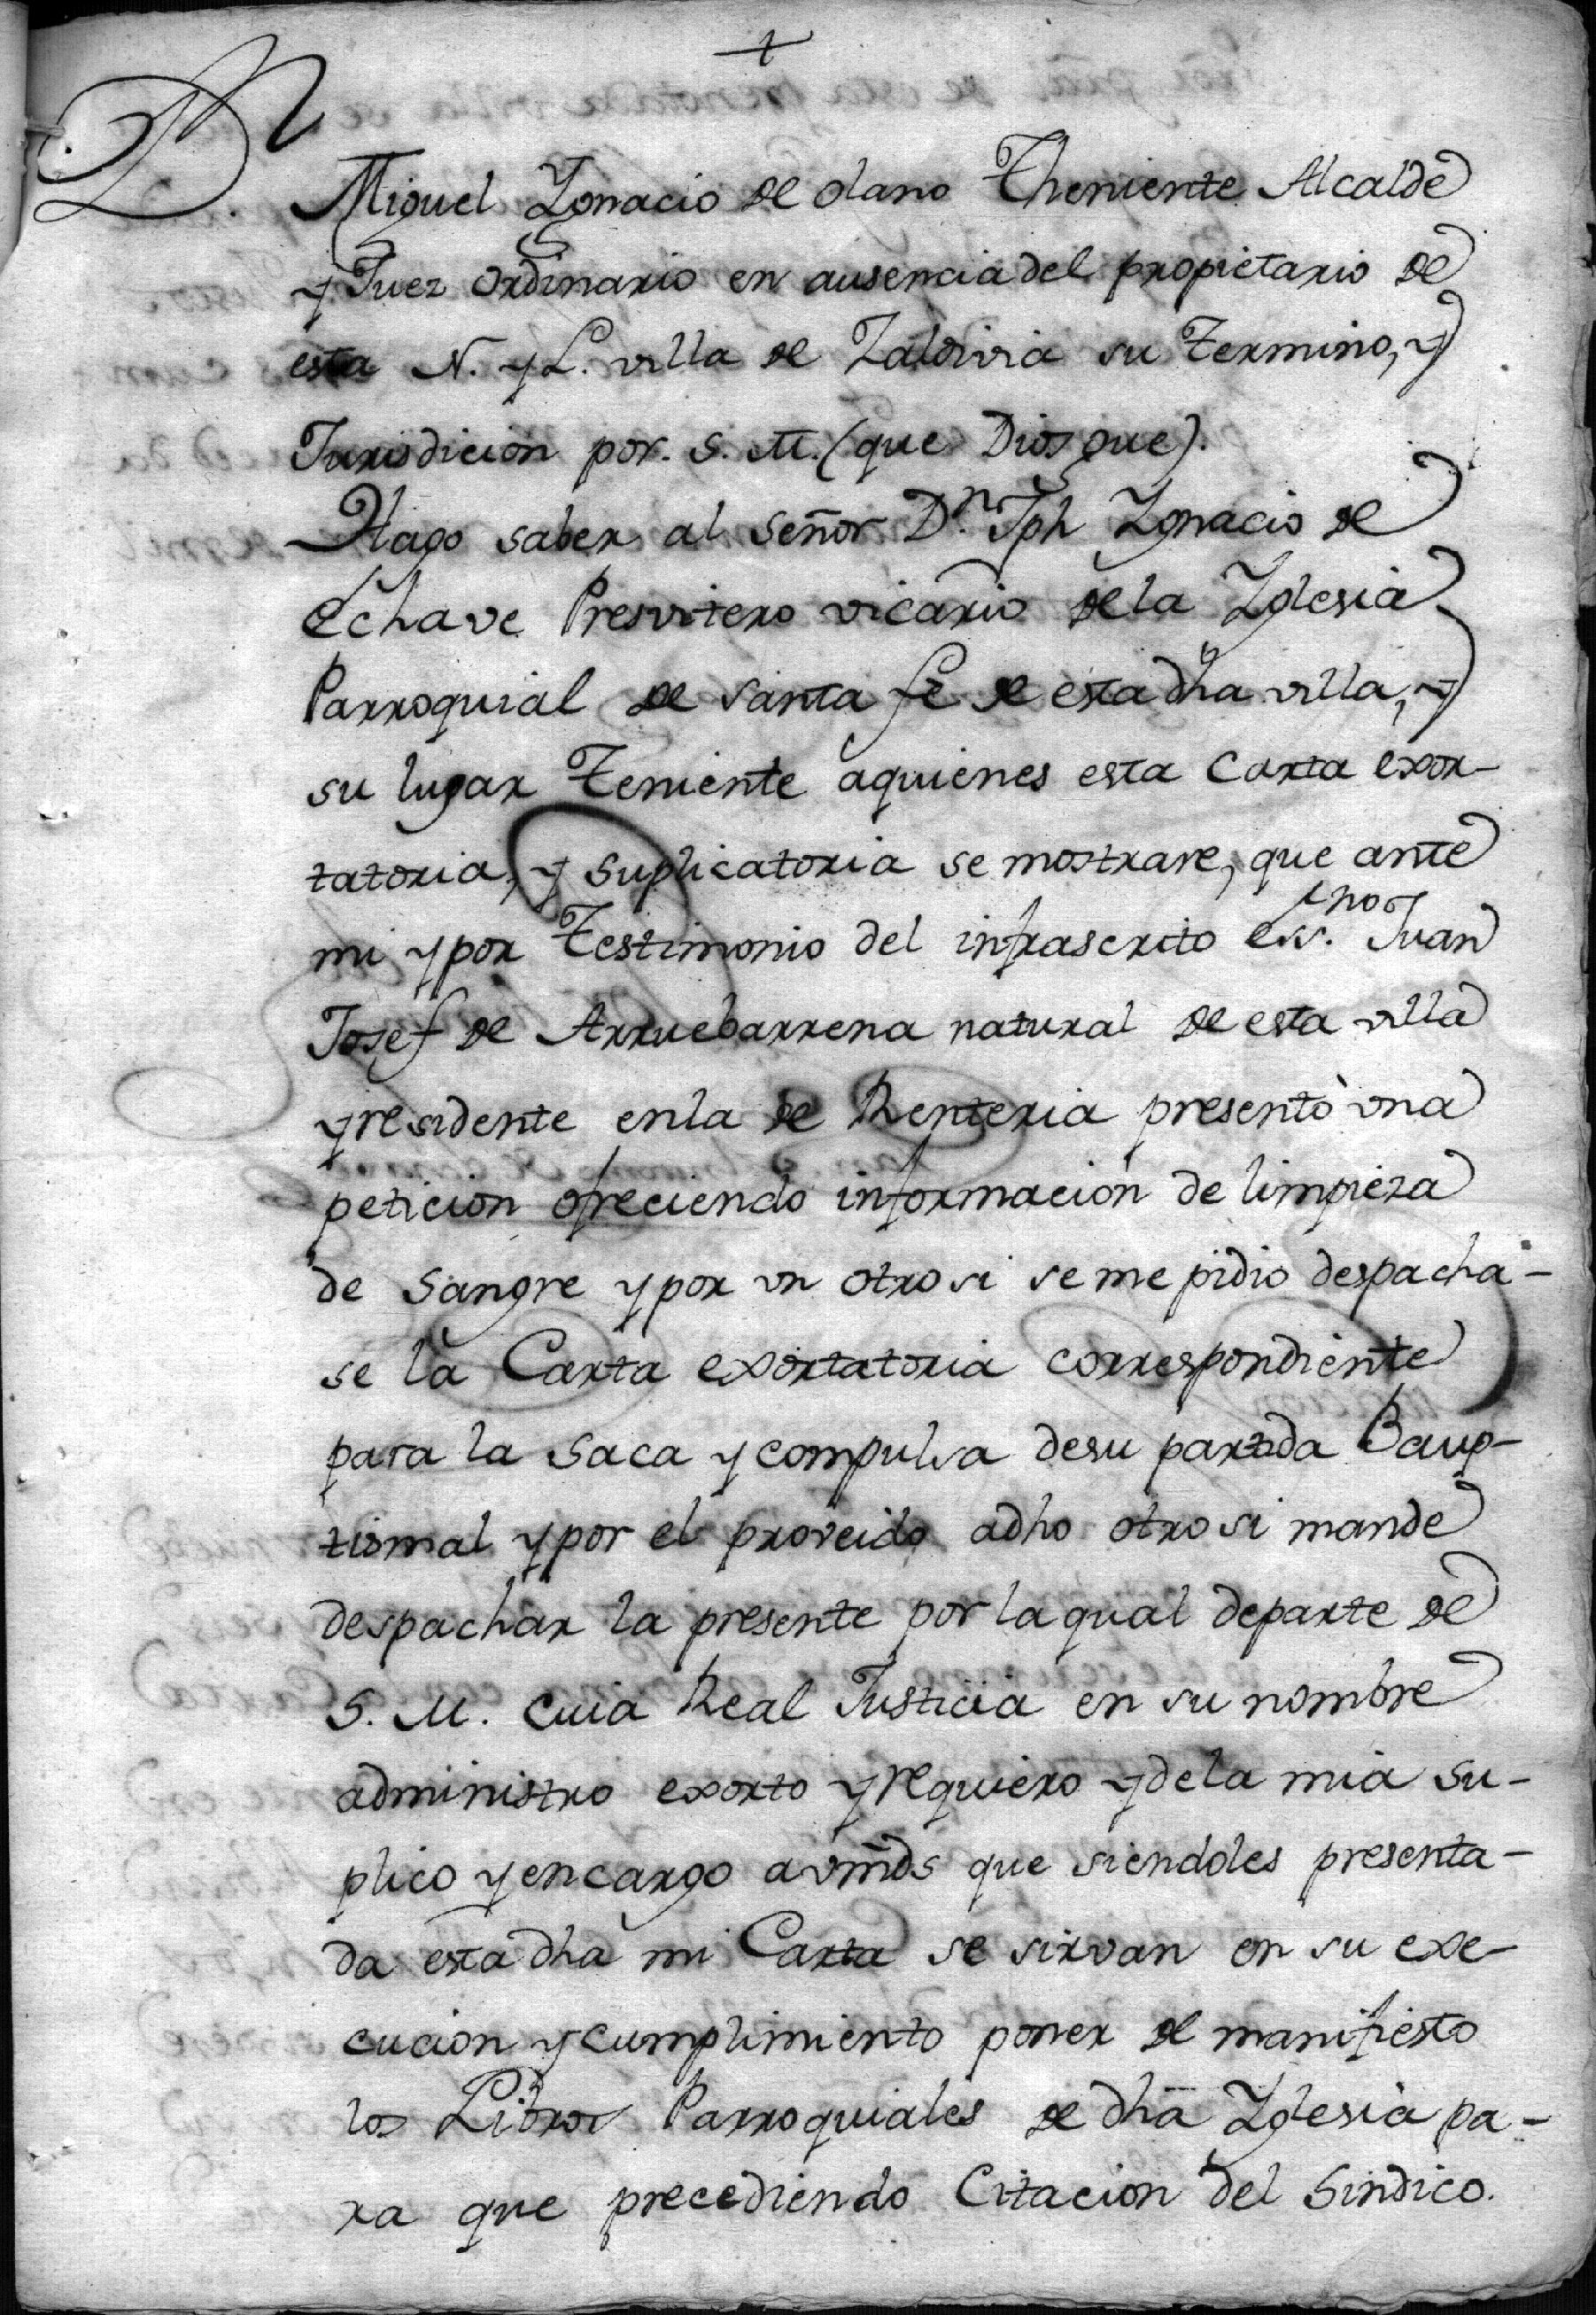 +
Dn
Miguel Ygnacio de olano Theniente Alcalde
y Juez ordinario en ausencia del propietario de
esta N. y L. villa de Zaldivia su termino, y
Jurisdicion por. S. M. (que Dios gue).
Hago saber al señor Dn. Jph Ygnacio de
Echave Presvitero vicario dela Yglesia
Parroquial de santa fe de esta dha villa, y
su lugar teniente aquienes esta Carta exor-
tatoria, y suplicatoria se mostrare, que ante
mi y por testimonio del infrascrito essno. Juan
Josef de Arruebarrena natural de esta villa
y residente enla de Renteria presentò una
peticion ofreciendo informacion de limpieza
de sangre y por un otro si se me pidio despacha-
se la Carta exortatoria correspondiente
para la saca y compulsa desu partida Baup-
tismal y por el proveido adho otro si mande
despachar la presente por laqual departe de
S. M. cuia Real Justicia en su nombre
administro exorto y requiero y dela mia su-
plico y encargo a vmds que siendoles presenta-
da esta dha mi Carta se sirvan en su exe-
cucion y cumplimiento poner de manifiesto
los Libros Parroquiales de dha Yglesia pa-
ra que precediendo Citacion del Sindico.